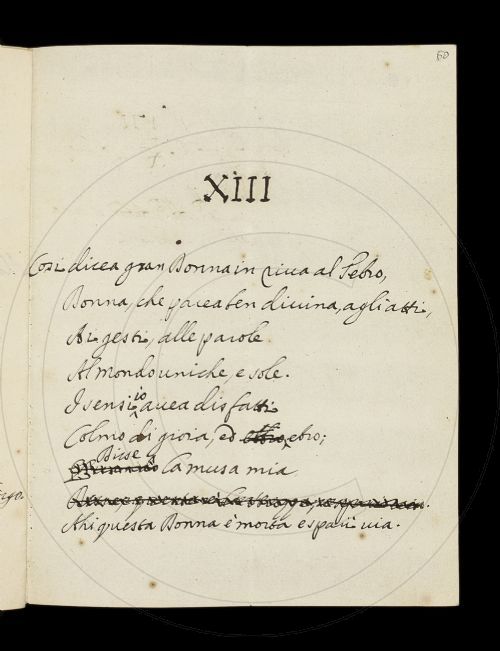 60
XIII
Così dicea gran Donna in riva al Tebro,
Donna, che parea ben divina, agli atti,
Ai gesti, alle parole
Al mondo uniche, e sole.
I sensi io avea disfatti
Colmo di gioia, ed ebro;
Disse la musa mia
Ahi questa Donna è morta e sparì via.